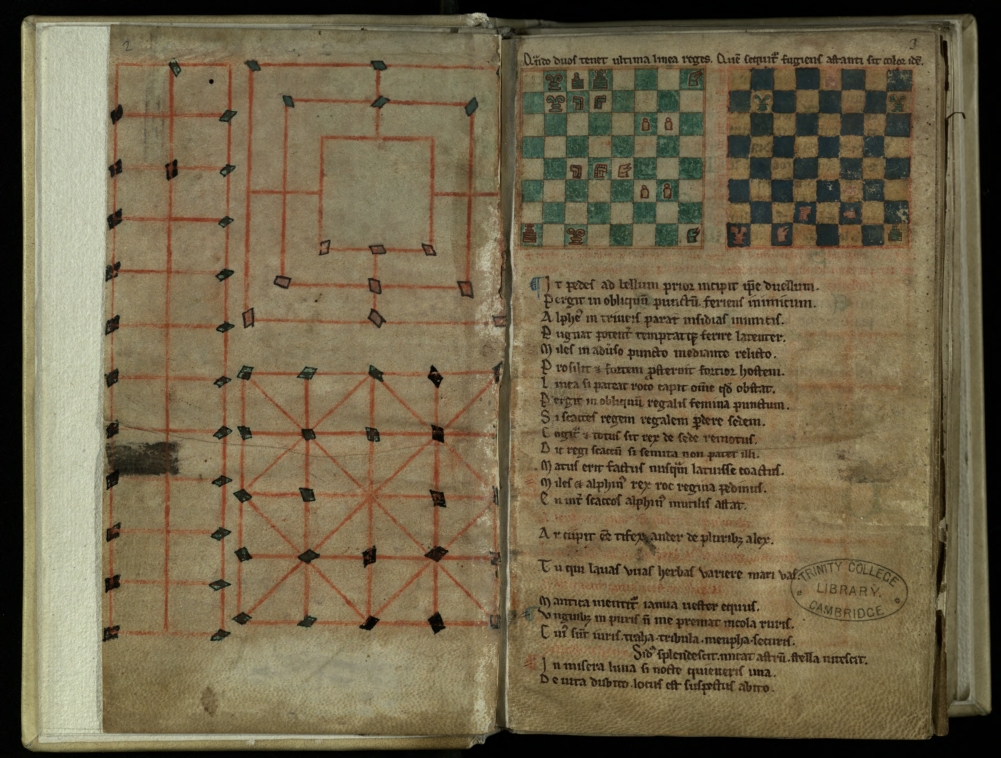 2
3
Qn̄do duos tenet ultima linea reges. Quē sequit᷑ fugiens astanti sit color idē.
It pedes ad bellum prior incipit ip̄e duellum.
Pergit in obliquū punctū feriens inimicum.
Alphin᷒ in triuiis parat insidias inimicis.
Pugnat potent᷑ temptatq; ferire latenter.
Miles in aduso puncto mediante relicto.
Prosilit & fortem ꝓsternit fortior hostem.
Linea si pateat roco capit om̄e qd̄ obstat.
Pergit in obliquū regalis femina punctum.
Si scacces regem regalem ꝑdere sedem.
Cogit᷑ & totus sit rex de sede remotus.
Dic regi scaccū si semita non patet illi.
Matus erit factus nusqm̄ latuisse coactus.
Miles & alphin᷒ rex roc regina pedinus.
Et int᷑ scaccos alphin᷒ inutilis astat.
ander de pluribz alex.
Tu qui lauas uitas herbas uariere mari uas
Mantica mentit᷑ ianua uester equus.
Vnguibz in puris n̄ me premat incola ruris.
traha tribula securis.
Sid᷒ splendescit micat astrū stella nitescit.
In misera luna si nocte quieueris una.
De uita dubito locus est suspectus abito.
TRINITY COLLEGE
LIBRARY.
CAMBRIDGE